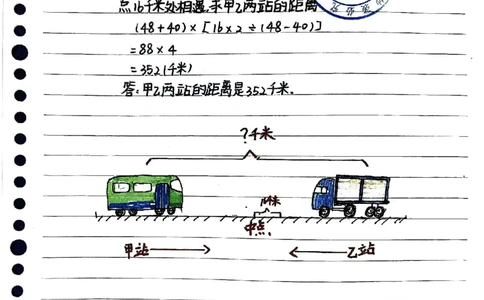 点16千米处相遇，求甲乙两站的距离
(48+40)×[16×2÷(48-40)]
=88×4
=352(千米)
答：甲乙两站的距离是352千米.
?千米
16千米
中点
甲站
乙站